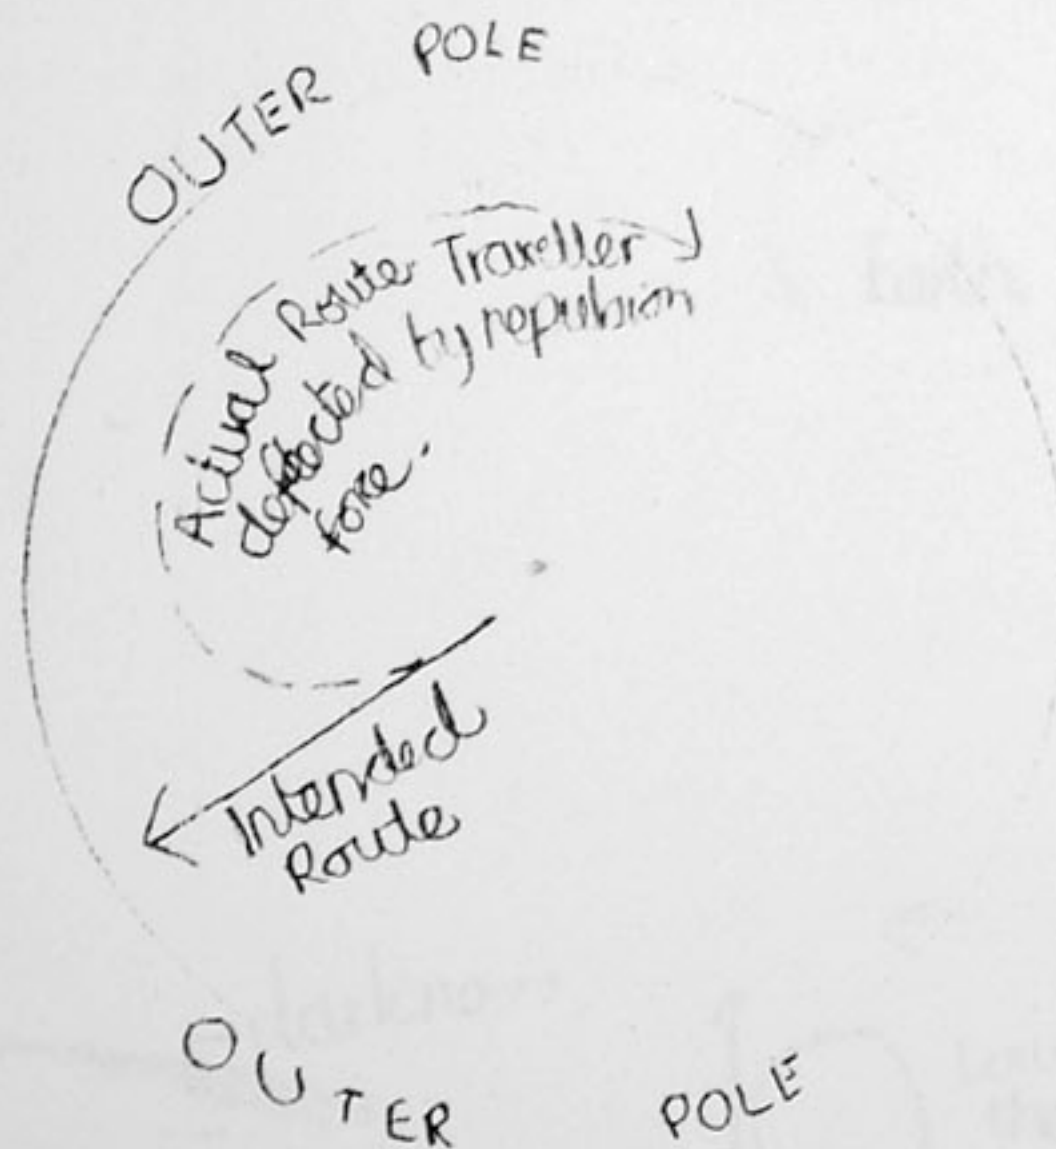 OUTER POLE
Actual Route Traveller
deflected by repulsion
force.
Intended
Route
OUTER POLE